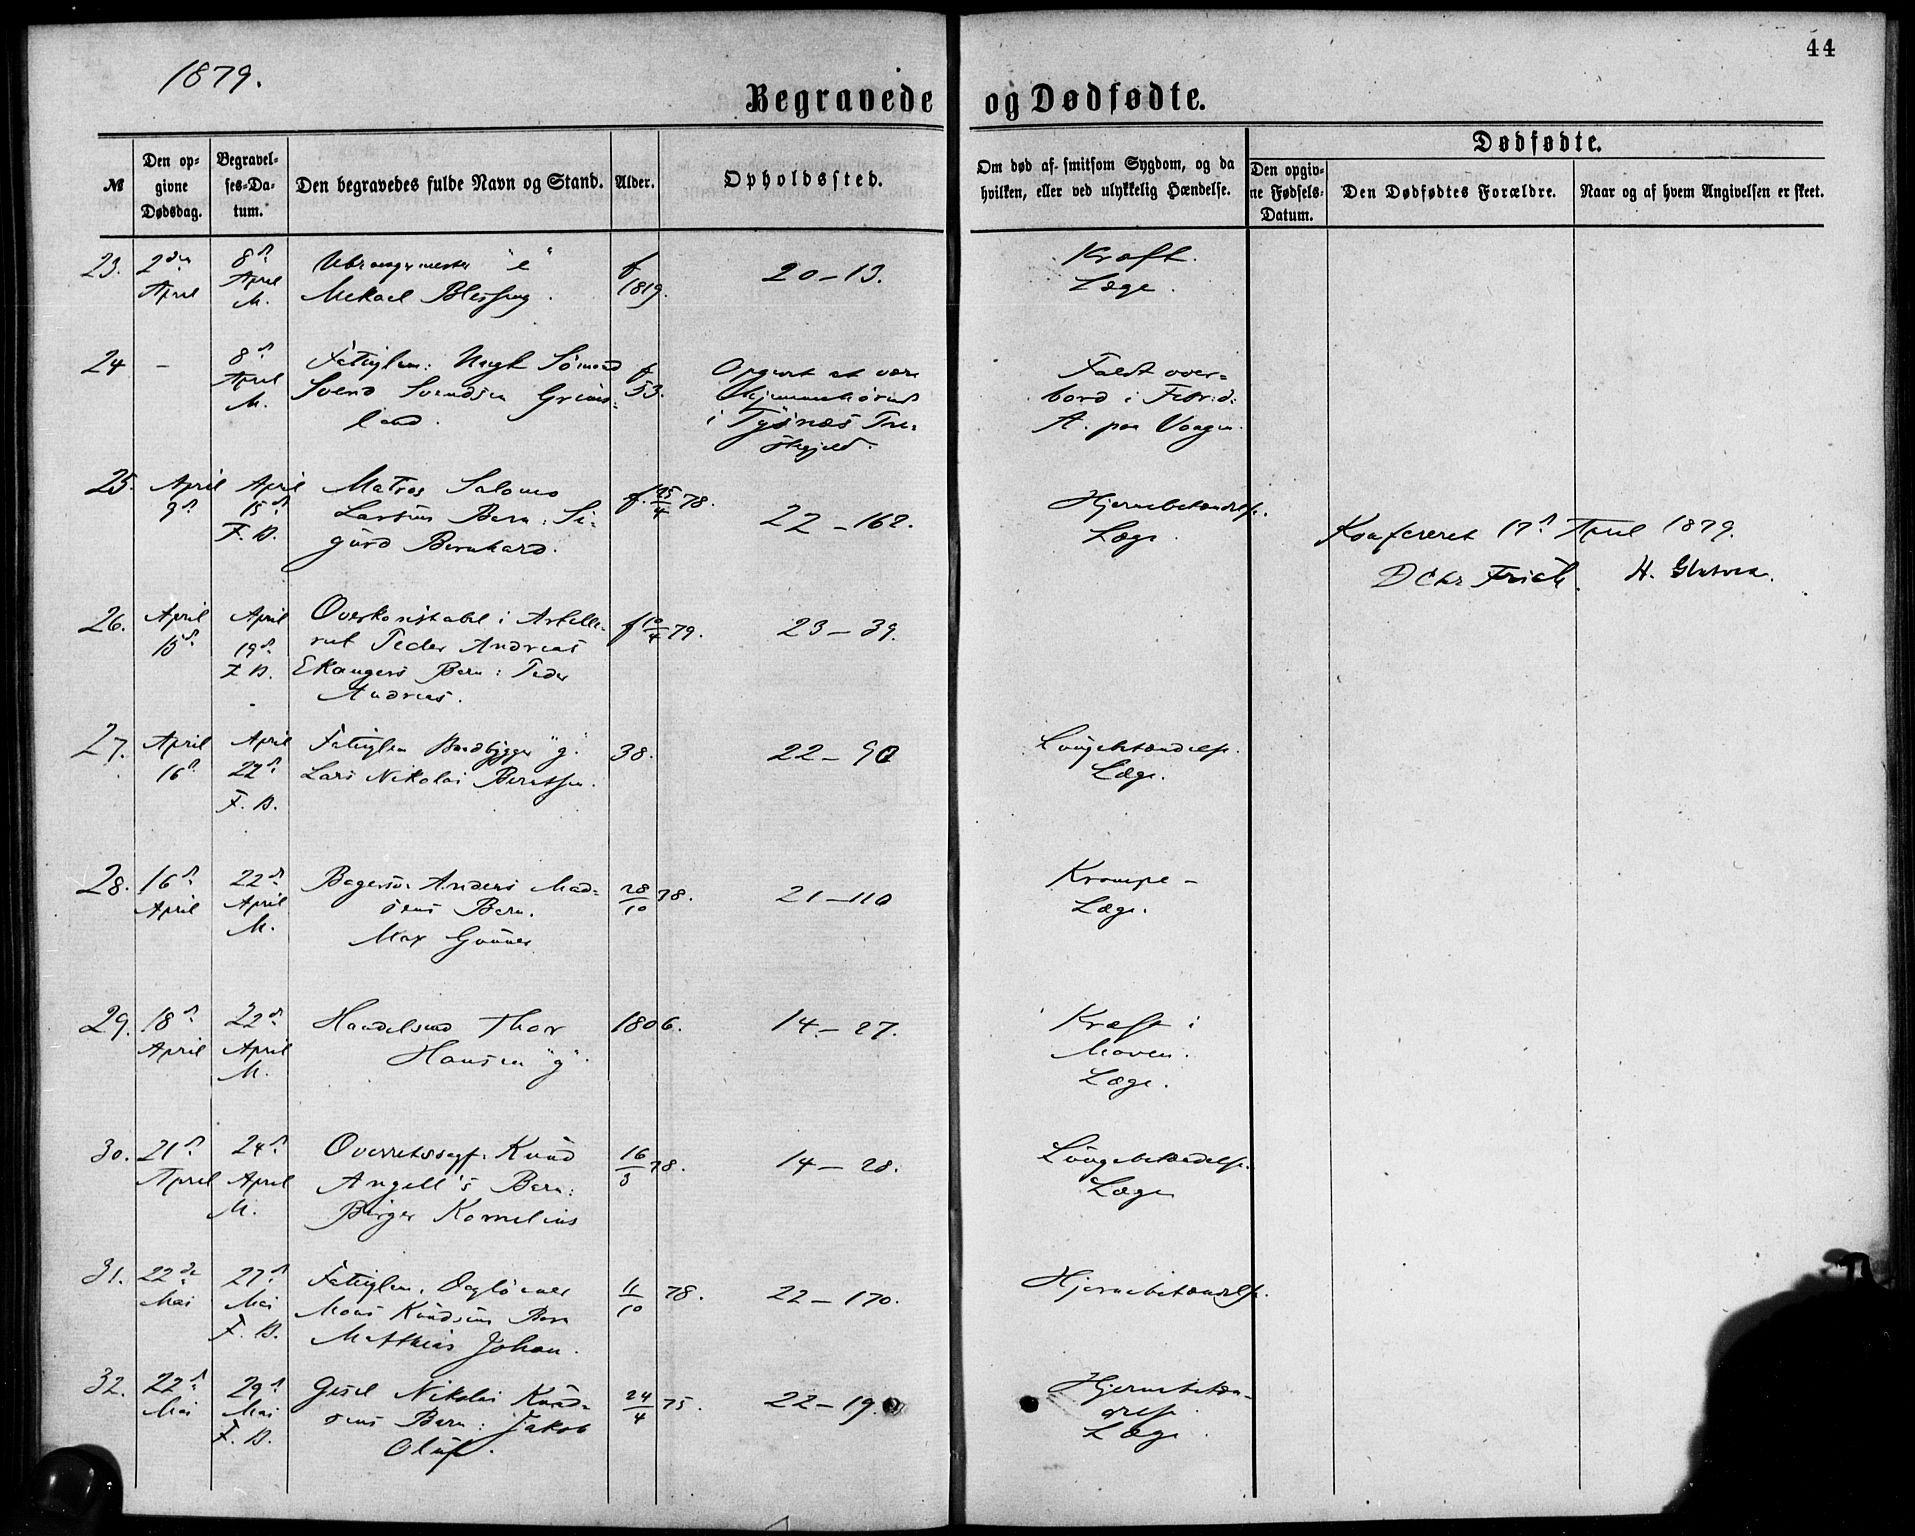 1879.
44
Begravede og Dødfødte.
№
Den op-
givne
Dødsdag.
Begravel-
ses-Da-
tum.
Den begravedes fulde Navn og Stand.
Alder.
Opholdssted.
Om død af smitsom Sygdom, og da
hvilken, eller ved ulykkelig Hændelse.
Dødfødte.
Den opgiv-
ne Fødsels-
Datum.
Den Dødfødtes Forældre.
Naar og af hvem Angivelsen er skeet.
23. 2den April
8d April M.
"e"
Mekael Blessing.
f 1819.
20-13.
Kræft.
Læge.
24 -
8d April M.
Fattiglem: Sømand
Svend Svendsen Grims-
land.
f 53.
Opgivet at være
hjemmehørende
i Tysnæs Præ-
stegjeld.
Faldt over-
bord i
A. paa Vaagen.
25. April 9d
April 15d F. B.
Matros Salomo
Larsens Barn: Si-
gurd Bernhard.
f. 25/4 78.
22-162.
Hjernebetændelse.
Læge.
Konfereret 17d April 1879.
D Chr Friele. H.
26. April 15d
April 19d F. B.
Overkonstabel i Artille-
riet Peder Andreas
Ekangers Barn: Peder
Andreas.
f 10/4 79.
23-39.
27. April 16d
April 22d F. B.
Fattiglem Baadbygger "g"
Lars Nikolai Berntsen.
38.
22-90
Lungebetændelse.
Læge.
28. 16d April
22d April M.
Bagersv. Anders Mad-
sens Barn.
Max Gunner
28/10 78.
21-110
Krampe -
Læge.
29. 18d April
22d April M.
Handelsmd Thor
Hansen "g".
1806.
14-27.
Kræft i
Maven.
Læge.
30. 21d April
24d April M.
Overretssagf. Knud
Angell's Barn:
Birger Kornelius
16/3 78.
14-28.
Lungebetændelse.
Læge
31. 22de Mai
27d Mai F. B.
Fattiglem. Dagløнner
Mons Knudsens Barn
Matthias Johan.
11/10 78.
22-170.
Hjernebetændelse.
32. 22d Mai
29d Mai F. B.
Gesel Nikolai Knud-
sens Barn: Jakob
Oluf.
24/4 75.
22-19
Hjernebetæn-
delse.
Læge.